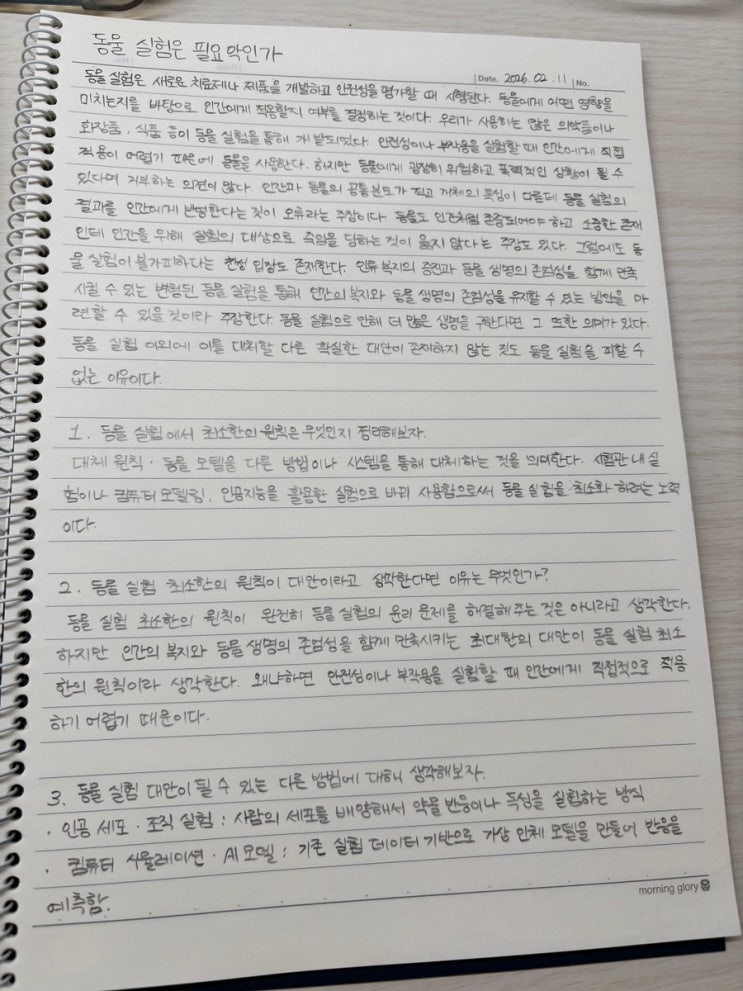 동물 실험은 필요악인가
Date. 2026. 02. 11 No.
동물 실험은 새로운 치료제나 제품을 개발하고 안전성을 평가할 때 시행된다. 동물에게 어떤 영향을
미치는지를 바탕으로 인간에게 적용할지 여부를 결정하는 것이다. 우리가 사용하는 많은 의약품이나
화장품, 식품 등이 동물 실험을 통해 개발되었다. 안전성이나 부작용을 실험할 때 인간에게 직접
적용이 어렵기 때문에 동물을 사용한다. 하지만 동물에게 굉장히 위험하고 폭력적인 상황이 될 수
있다며 거부하는 의견이 많다. 인간과 동물의 공통분모가 적고 개체의 특성이 다른데 동물 실험의
결과를 인간에게 반영한다는 것이 오류라는 주장이다. 동물도 인간처럼 존중되어야 하고 소중한 존재
인데 인간을 위해 실험의 대상으로 죽임을 당하는 것이 옳지 않다는 주장도 있다. 그럼에도 동
물 실험이 불가피하다는 찬성 입장도 존재한다. 인류 복지의 증진과 동물 생명의 존엄성을 함께 만족
시킬 수 있는 변형된 동물 실험을 통해 인간의 복지와 동물 생명의 존엄성을 유지할 수 있는 방안을 마
련할 수 있을 것이라 주장한다. 동물 실험으로 인해 더 많은 생명을 구한다면 그 또한 의미가 있다.
동물 실험 이외에 이를 대처할 다른 확실한 대안이 존재하지 않는 것도 동물 실험을 피할 수
없는 이유이다.
1. 동물 실험에서 최소한의 원칙은 무엇인지 정리해보자.
대체 원칙 · 동물 모델을 다른 방법이나 시스템을 통해 대체하는 것을 의미한다. 시험관 내 실
험이나 컴퓨터 모델링, 인공지능을 활용한 실험으로 바꿔 사용함으로써 동물 실험을 최소화 하려는 노력
이다.
2. 동물 실험 최소한의 원칙이 대안이라고 생각한다면 이유는 무엇인가?
동물 실험 최소한의 원칙이 완전히 동물 실험의 윤리 문제를 해결해 주는 것은 아니라고 생각한다.
하지만 인간의 복지와 동물 생명의 존엄성을 함께 만족시키는 최대한의 대안이 동물 실험 최소
한의 원칙이라 생각한다. 왜냐하면 안전성이나 부작용을 실험할 때 인간에게 직접적으로 적용
하기 어렵기 때문이다.
3. 동물 실험 대안이 될 수 있는 다른 방법에 대해 생각해보자.
· 인공 세포 · 조직 실험 : 사람의 세포를 배양해서 약물 반응이나 독성을 실험하는 방식
· 컴퓨터 시뮬레이션 · AI 모델 : 기존 실험 데이터 기반으로 가상 인체 모델을 만들어 반응을
예측함.
morning glory